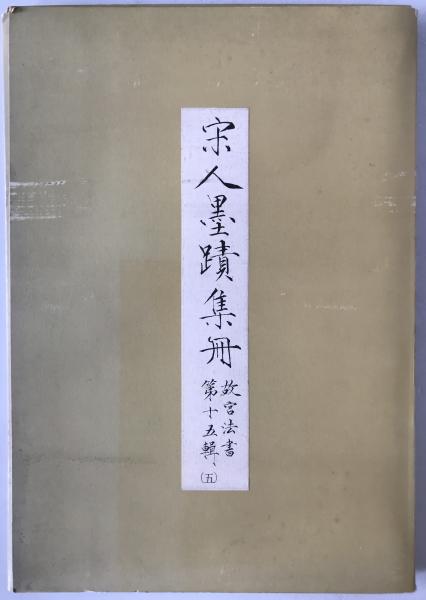 宋人墨蹟集冊
故宮法書
第十五輯、
(五)